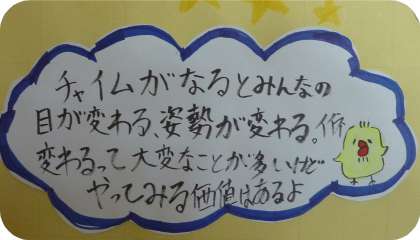 チャイムがなるとみんなの
目が変わる、姿勢が変わる。
変わるって大変なことが多いけど
やってみる価値はあるよ